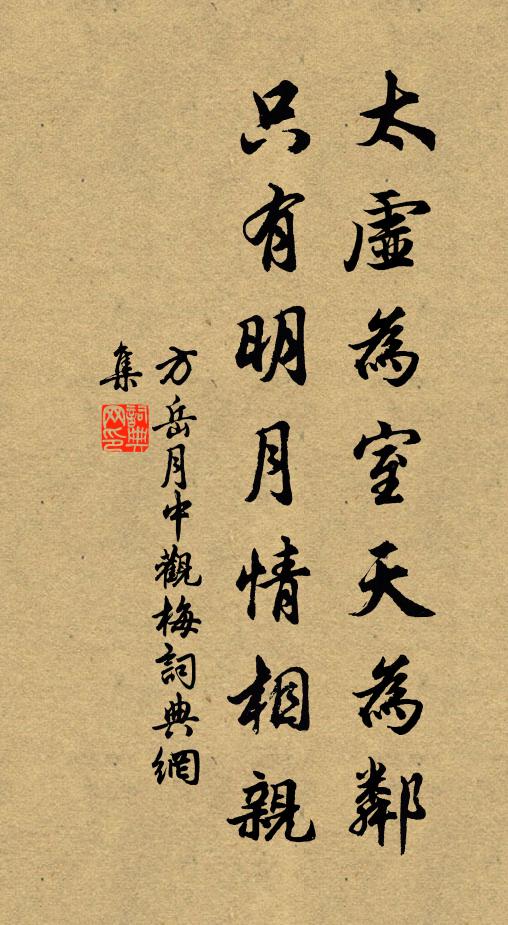 太虛為室天為鄰
只有明月情相親
方岳月中觀梅詞典網
集
詞典網印